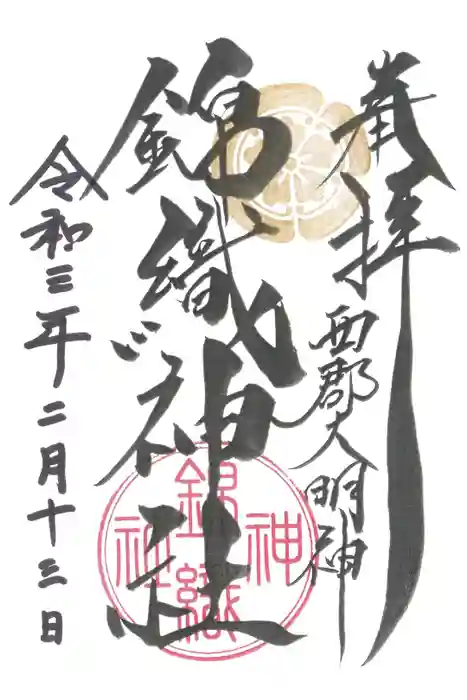 奉拝
西郡大明神
錦織神社
令和三年二月十三日
錦織
神社